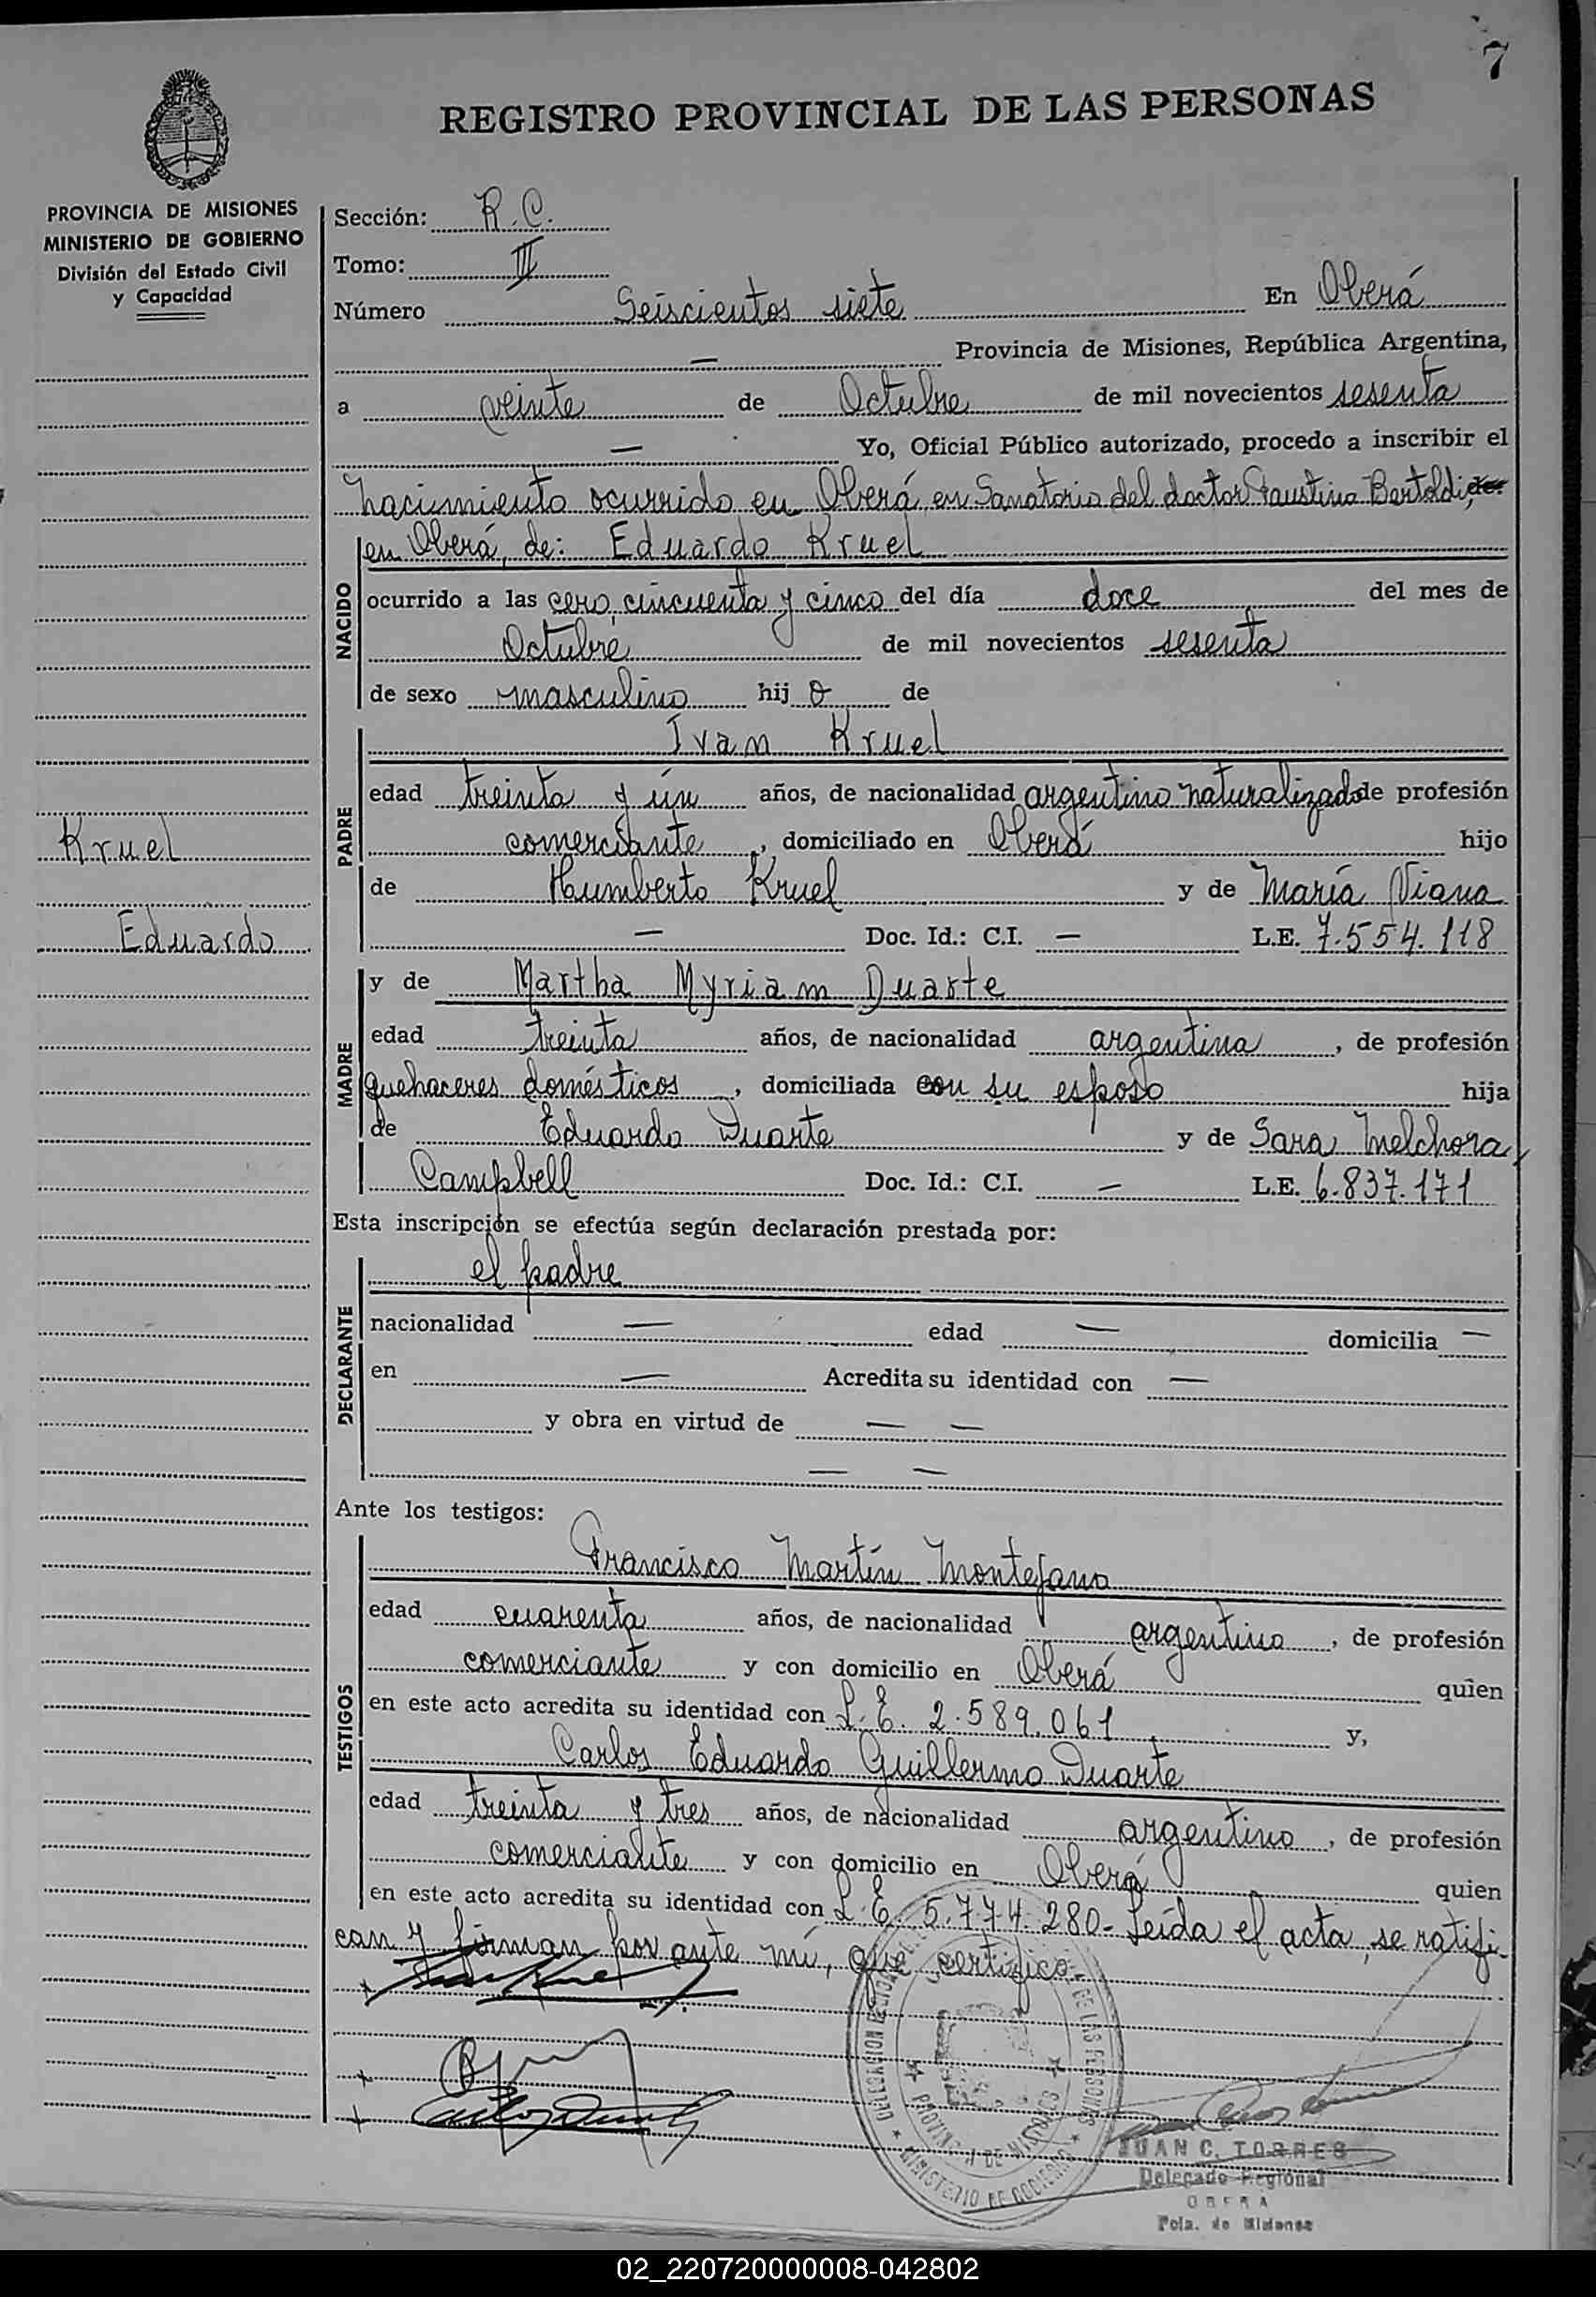 7
REGISTRO PROVINCIAL DE LAS PERSONAS
PROVINCIA DE MISIONES
MINISTERIO DE GOBIERNO
División del Estado Civil
y Capacidad
Kruel
Eduardo
Sección: R.C.
Tomo: III
Número Seiscientos siete En Oberá
— Provincia de Misiones, República Argentina,
a veinte de Octubre de mil novecientos sesenta
— Yo, Oficial Público autorizado, procedo a inscribir el
nacimiento ocurrido en Oberá, en Sanatorio del doctor Faustino Bertoldi,
en Oberá, de: Eduardo Kruel
NACIDO
ocurrido a las cero, cincuenta y cinco del día doce del mes de
Octubre de mil novecientos sesenta
de sexo masculino hijo de
Ivan Kruel
PADRE
edad treinta y ún años, de nacionalidad argentino naturalizado de profesión
comerciante, domiciliado en Oberá hijo
de Humberto Kruel y de María Viana
— Doc. Id.: C.I. — L.E. 7.554.118
MADRE
y de Martha Myriam Duarte
edad treinta años, de nacionalidad argentina, de profesión
quehaceres domésticos, domiciliada con su esposo hija
de Eduardo Duarte y de Sara Melchora
Campbell Doc. Id.: C.I. — L.E. 6.837.171
Esta inscripción se efectúa según declaración prestada por:
el padre
DECLARANTE
nacionalidad — edad — domicilia —
en — Acredita su identidad con —
y obra en virtud de — —
— —
Ante los testigos:
Francisco Martín Montejano
TESTIGOS
edad cuarenta años, de nacionalidad argentino, de profesión
comerciante y con domicilio en Oberá quien
en este acto acredita su identidad con L.E. 2.589.061 y,
Carlos Eduardo Guillermo Duarte
edad treinta y tres años, de nacionalidad argentino, de profesión
comerciante y con domicilio en Oberá quien
en este acto acredita su identidad con L.E. 5.774.280- Leída el acta, se ratifi-
can y firman por ante mí, que certifico.-
DELEGACION DE LAS PERSONAS
PROVINCIA DE MISIONES
MINISTERIO DE GOBIERNO
JUAN C. TORRES
Delegado Regional
OBERA
Pcia. de Misiones
02_220720000008-042802